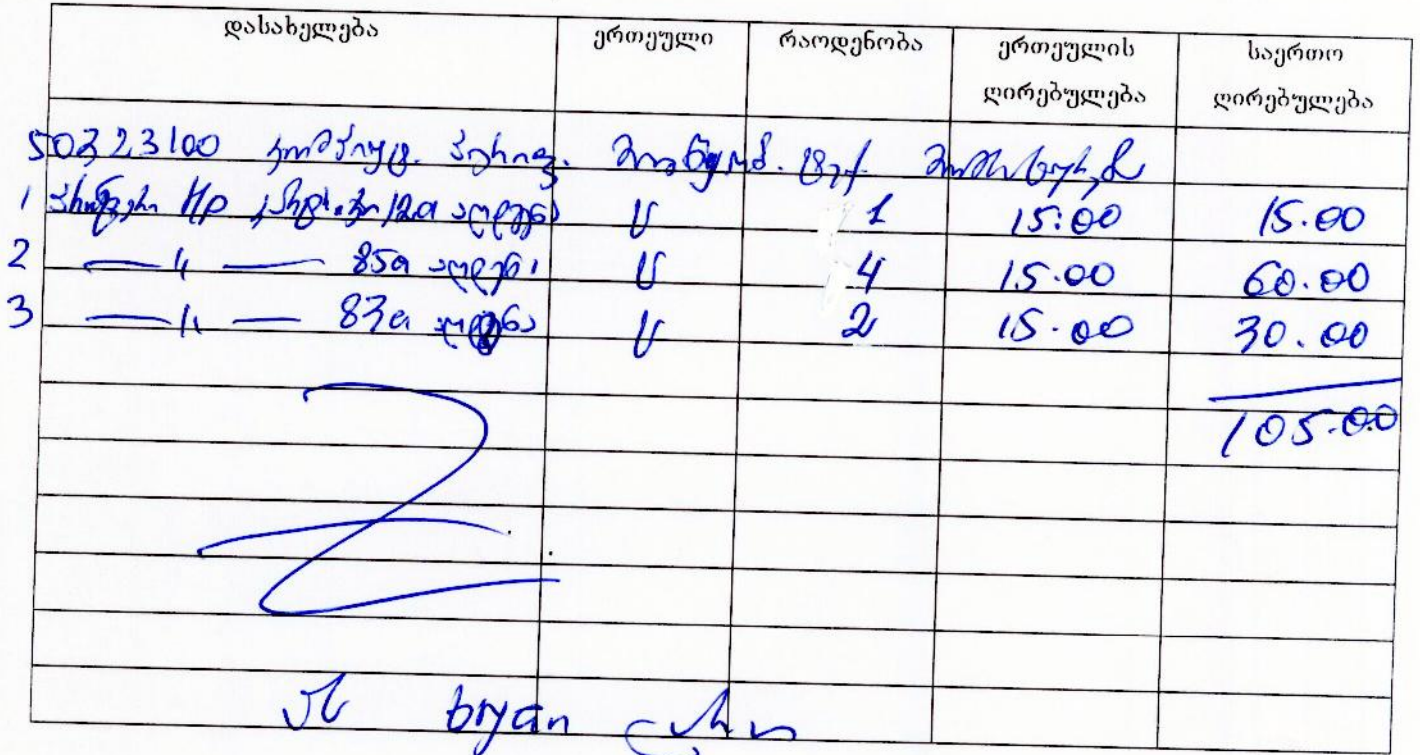 დასახელება ერთეული რაოდენობა ერთეულის ღირებულება საერთო ღირებულება
50323100 კომპიუტ. პერიფ. მოწყობ. ტექ. მომსახურება
1 პრინტერი HP კარტრიჯი 12a აღდგენა ც 1 15.00 15.00
2 —〃— 85a აღდგენა ც 4 15.00 60.00
3 —〃— 83a აღდგენა ც 2 15.00 30.00
105.00